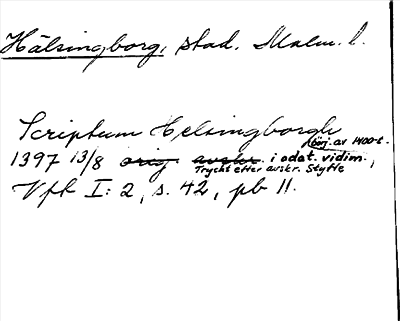 Hälsingborg, stad. Malm. l.
Scriptum Helsingborgh
(börj. av 1400-t.
1397 13/8 orig. avskr. i odat. vidim.,
Tryckt efter avskr. Styffe
I: 2, s. 42, pb 11.